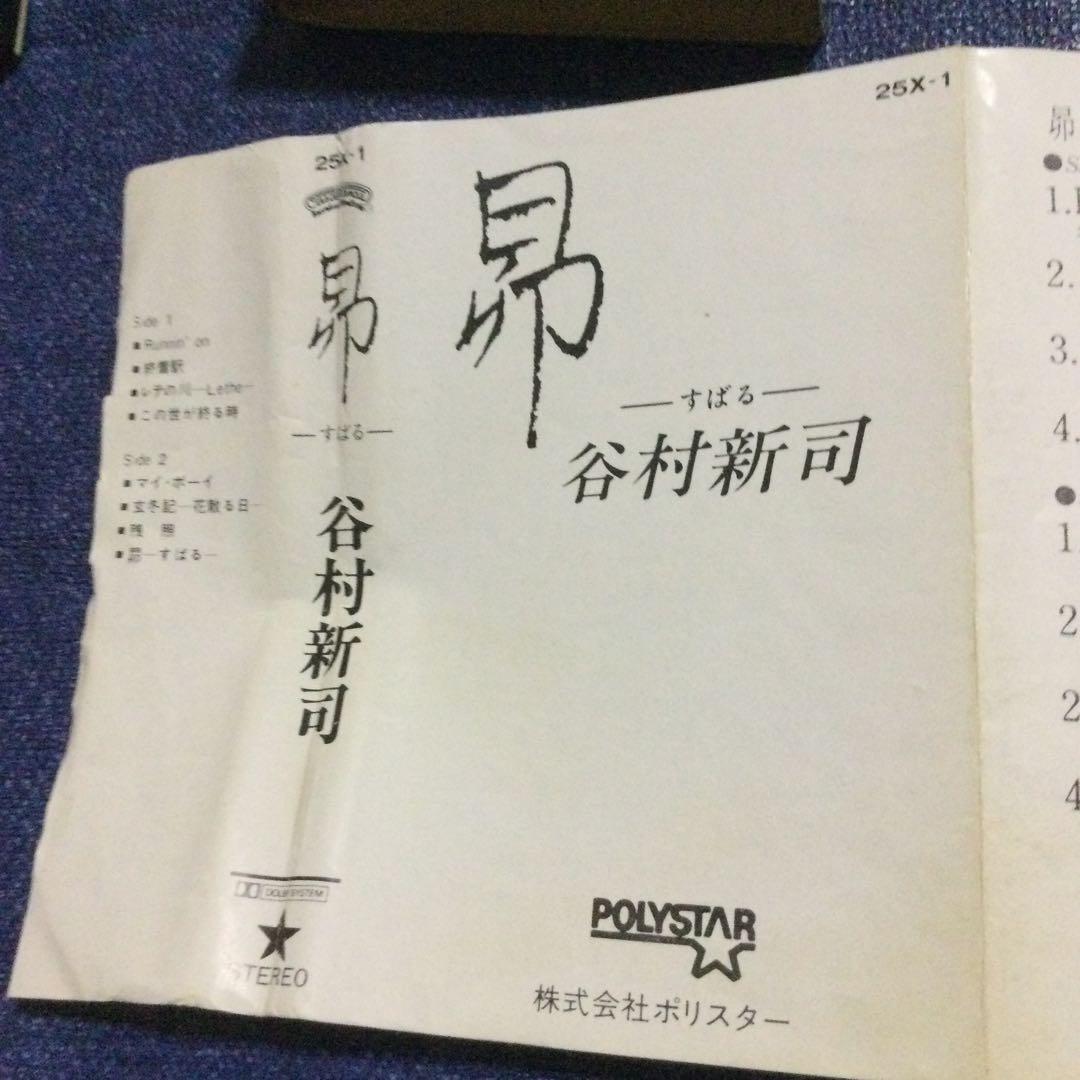 Side 1
■Runnin' on
■終着駅
■レテの川—Lethe—
■この世が終る時
Side 2
■マイ・ボーイ
■玄冬記—花散る日—
■残 照
■昴—すばる—
25X-1
昴
—すばる—
谷村新司
DOLBY SYSTEM
STEREO
25X-1
昴
—すばる—
谷村新司
POLYSTAR
株式会社ポリスター
昴
●S
1.
2.
3.
4.
●
1.
2
2
4